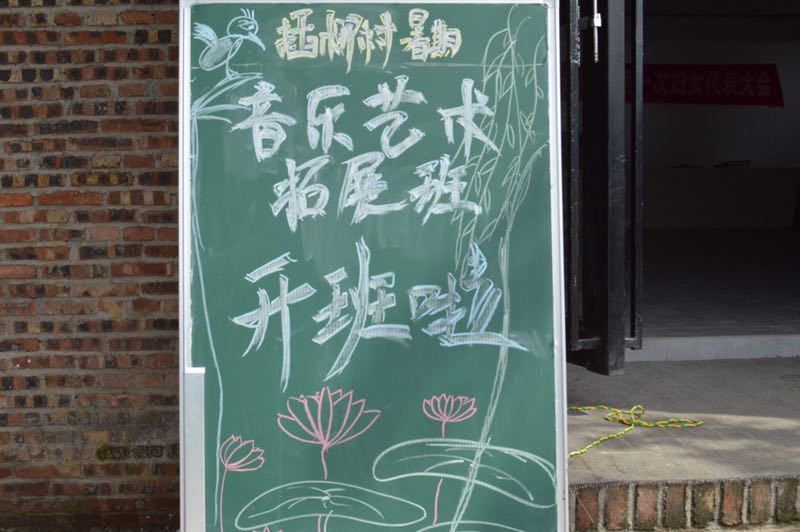 梧桐村 暑期
音乐艺术
拓展班
开班啦
次妇女代表大会